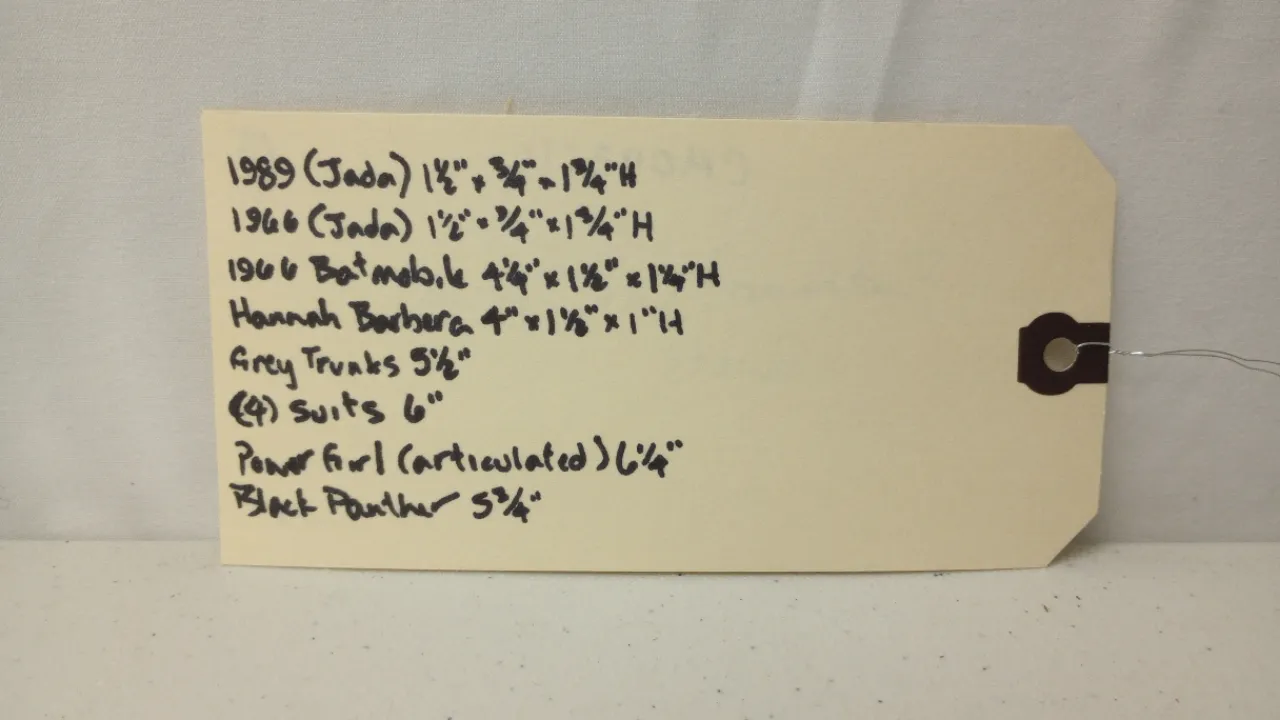 1989 (Jada) 1½" x ¾" x 1¾" H
1966 (Jada) 1½" x ¾" x 1¾" H
1966 Batmobile 4¼" x 1½" x 1¼" H
Hannah Barbera 4" x 1½" x 1" H
Grey Trunks 5½"
(4) suits 6"
Power Girl (articulated) 6¼"
Black Panther 5¾"